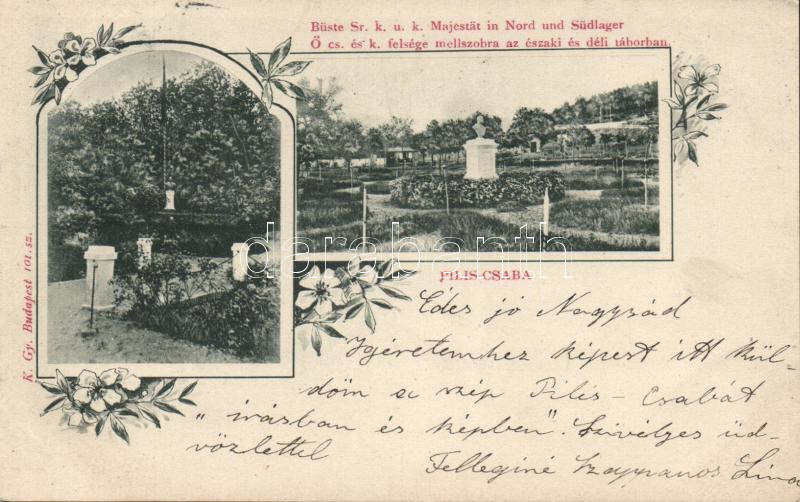 Büste Sr. k. u. k. Majestät in Nord und Südlager
Ő cs. és k. felsége mellszobra az északi és déli táborban.
darabanth
PILIS-CSABA
K. Gy. Budapest 101. sz.
Édes jó Nagysád
Igéretemhez képest itt kül-
döm a szép Pilis-Csabát
"irásban és képben". Szivélyes üd-
vözlettel
Szappanos Lina